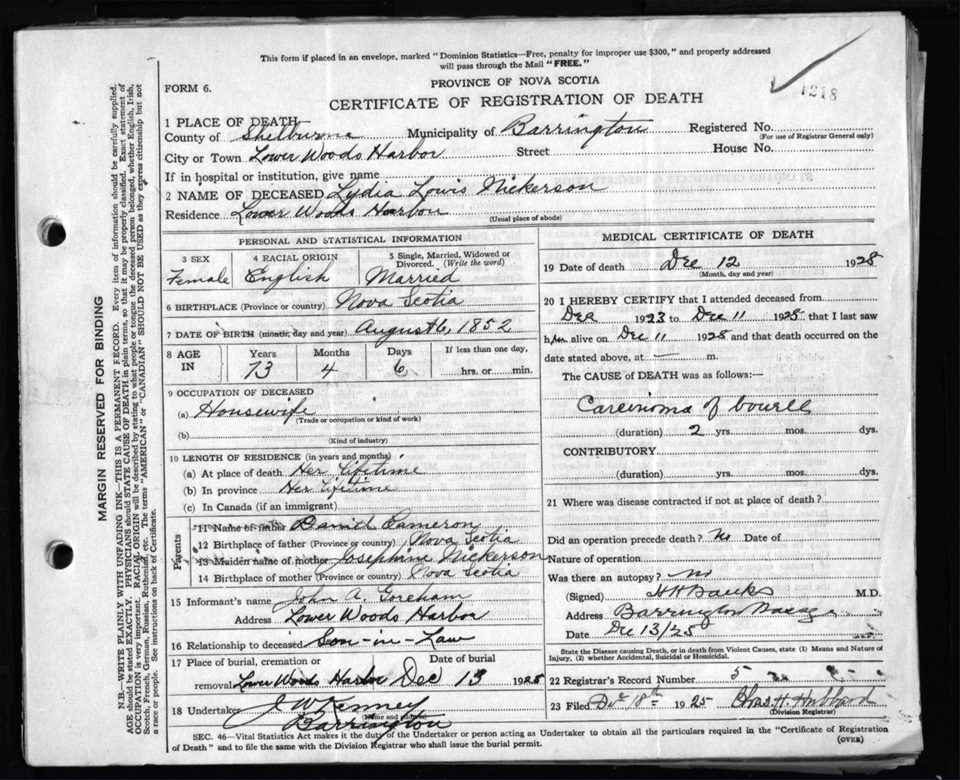 This form if placed in an envelope, marked "Dominion Statistics—Free, penalty for improper use $300," and properly addressed
will pass through the Mail "FREE."
1218
PROVINCE OF NOVA SCOTIA
FORM 6.
CERTIFICATE OF REGISTRATION OF DEATH
1 PLACE OF DEATH—
County of Shelburne Municipality of Barrington Registered No.
(For use of Registrar General only)
City or Town Lower Woods Harbor Street House No.
If in hospital or institution, give name
2 NAME OF DECEASED Lydia Lowis Nickerson
Residence Lower Woods Harbor
(Usual place of abode)
PERSONAL AND STATISTICAL INFORMATION
3 SEX 4 RACIAL ORIGIN 5 Single, Married, Widowed or
Divorced. (Write the word)
Female English Married
6 BIRTHPLACE (Province or country) Nova Scotia
7 DATE OF BIRTH (month, day and year) August 6, 1852
8 AGE IN Years Months Days If less than one day,
73 4 6 hrs. or min.
9 OCCUPATION OF DECEASED
(a) Housewife
(Trade or occupation or kind of work)
(b)
(Kind of industry)
10 LENGTH OF RESIDENCE (in years and months)
(a) At place of death Her Lifetime
(b) In province Her Lifetime
(c) In Canada (if an immigrant)
Parents
11 Name of father Daniel Cameron
12 Birthplace of father (Province or country) Nova Scotia
13 Maiden name of mother Josephine Nickerson
14 Birthplace of mother (Province or country) Nova Scotia
15 Informant's name John A. Goreham
Address Lower Woods Harbor
16 Relationship to deceased Son-in-Law
17 Place of burial, cremation or Date of burial
removal Lower Woods Harbor Dec 13 1925
18 Undertaker J W Kenney
(Name and address)
Barrington
MEDICAL CERTIFICATE OF DEATH
19 Date of death Dec 12 1925
(Month, day and year)
20 I HEREBY CERTIFY that I attended deceased from
Dec 1923 to Dec 11 1925 that I last saw
her alive on Dec 11 1925 and that death occurred on the
date stated above, at — m.
The CAUSE of DEATH was as follows:—
Carcinoma of bowell
(duration) 2 yrs. mos. dys.
CONTRIBUTORY
(duration) yrs. mos. dys.
21 Where was disease contracted if not at place of death?
Did an operation precede death? No Date of
Nature of operation
Was there an autopsy? no
(Signed) H H Banks M.D.
Address Barrington Passage
Date Dec 13/25
State the Disease causing Death, or in death from Violent Causes, state (1) Means and Nature of
Injury, (2) whether Accidental, Suicidal or Homicidal.
22 Registrar's Record Number 5
23 Filed Dec 18th 1925 Chas. H. Hubbard
(Division Registrar)
SEC. 46—Vital Statistics Act makes it the duty of the Undertaker or person acting as Undertaker to obtain all the particulars required in the "Certificate of Registration
of Death" and to file the same with the Division Registrar who shall issue the burial permit.
(OVER)
MARGIN RESERVED FOR BINDING
N.B.—WRITE PLAINLY WITH UNFADING INK—THIS IS A PERMANENT RECORD. Every item of information should be carefully supplied.
AGE should be stated EXACTLY. PHYSICIANS should STATE CAUSE OF DEATH in plain terms, so that it may be properly classified. Exact statement of
OCCUPATION is very important. RACIAL ORIGIN will be described by stating to what people or tongue the deceased person belonged, whether English, Irish,
Scotch, French, German, Russian, Ruthenian, etc. The terms "AMERICAN" or "CANADIAN" SHOULD NOT BE USED as they express citizenship but not
a race or people. See instructions on back of Certificate.